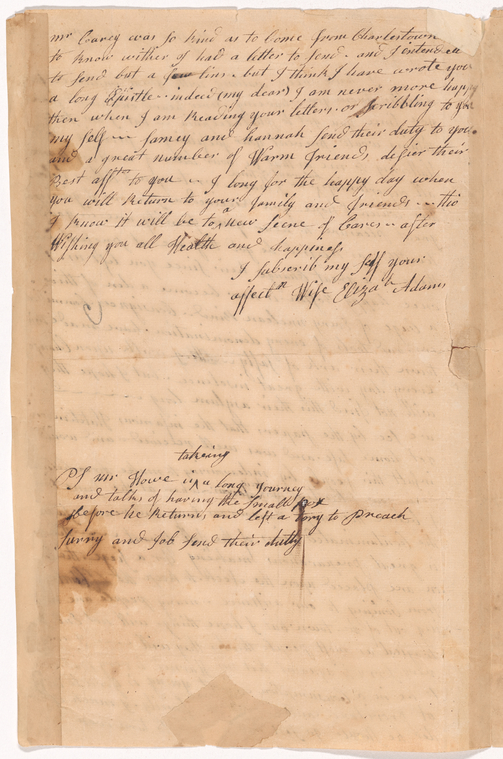 mr Coarey was so kind as to Come from Charlestown
to know wither I had a letter to send - and I intended
to send but a few lins - but I think I have wrote you
a long Epistle - indeed (my dear) I am never more happy
then when I am Reading your letters or scribbling to you
my self - Jamey and hannah send their duty to you
and a great number of Warm Friends desier their
best affts to you - I long for the happy day when
you will Return to your family and friends - tho
I know it will be to a new Scene of Cares - after
Wishing you all Health and happiness
I subscrib my self your
affectn Wife Elizah Adams
takeing
PS mr Howe is a long Journey
and talks of having the Small pox
before he Returns, and left a Tory to Preach
Surry and Job send their duty